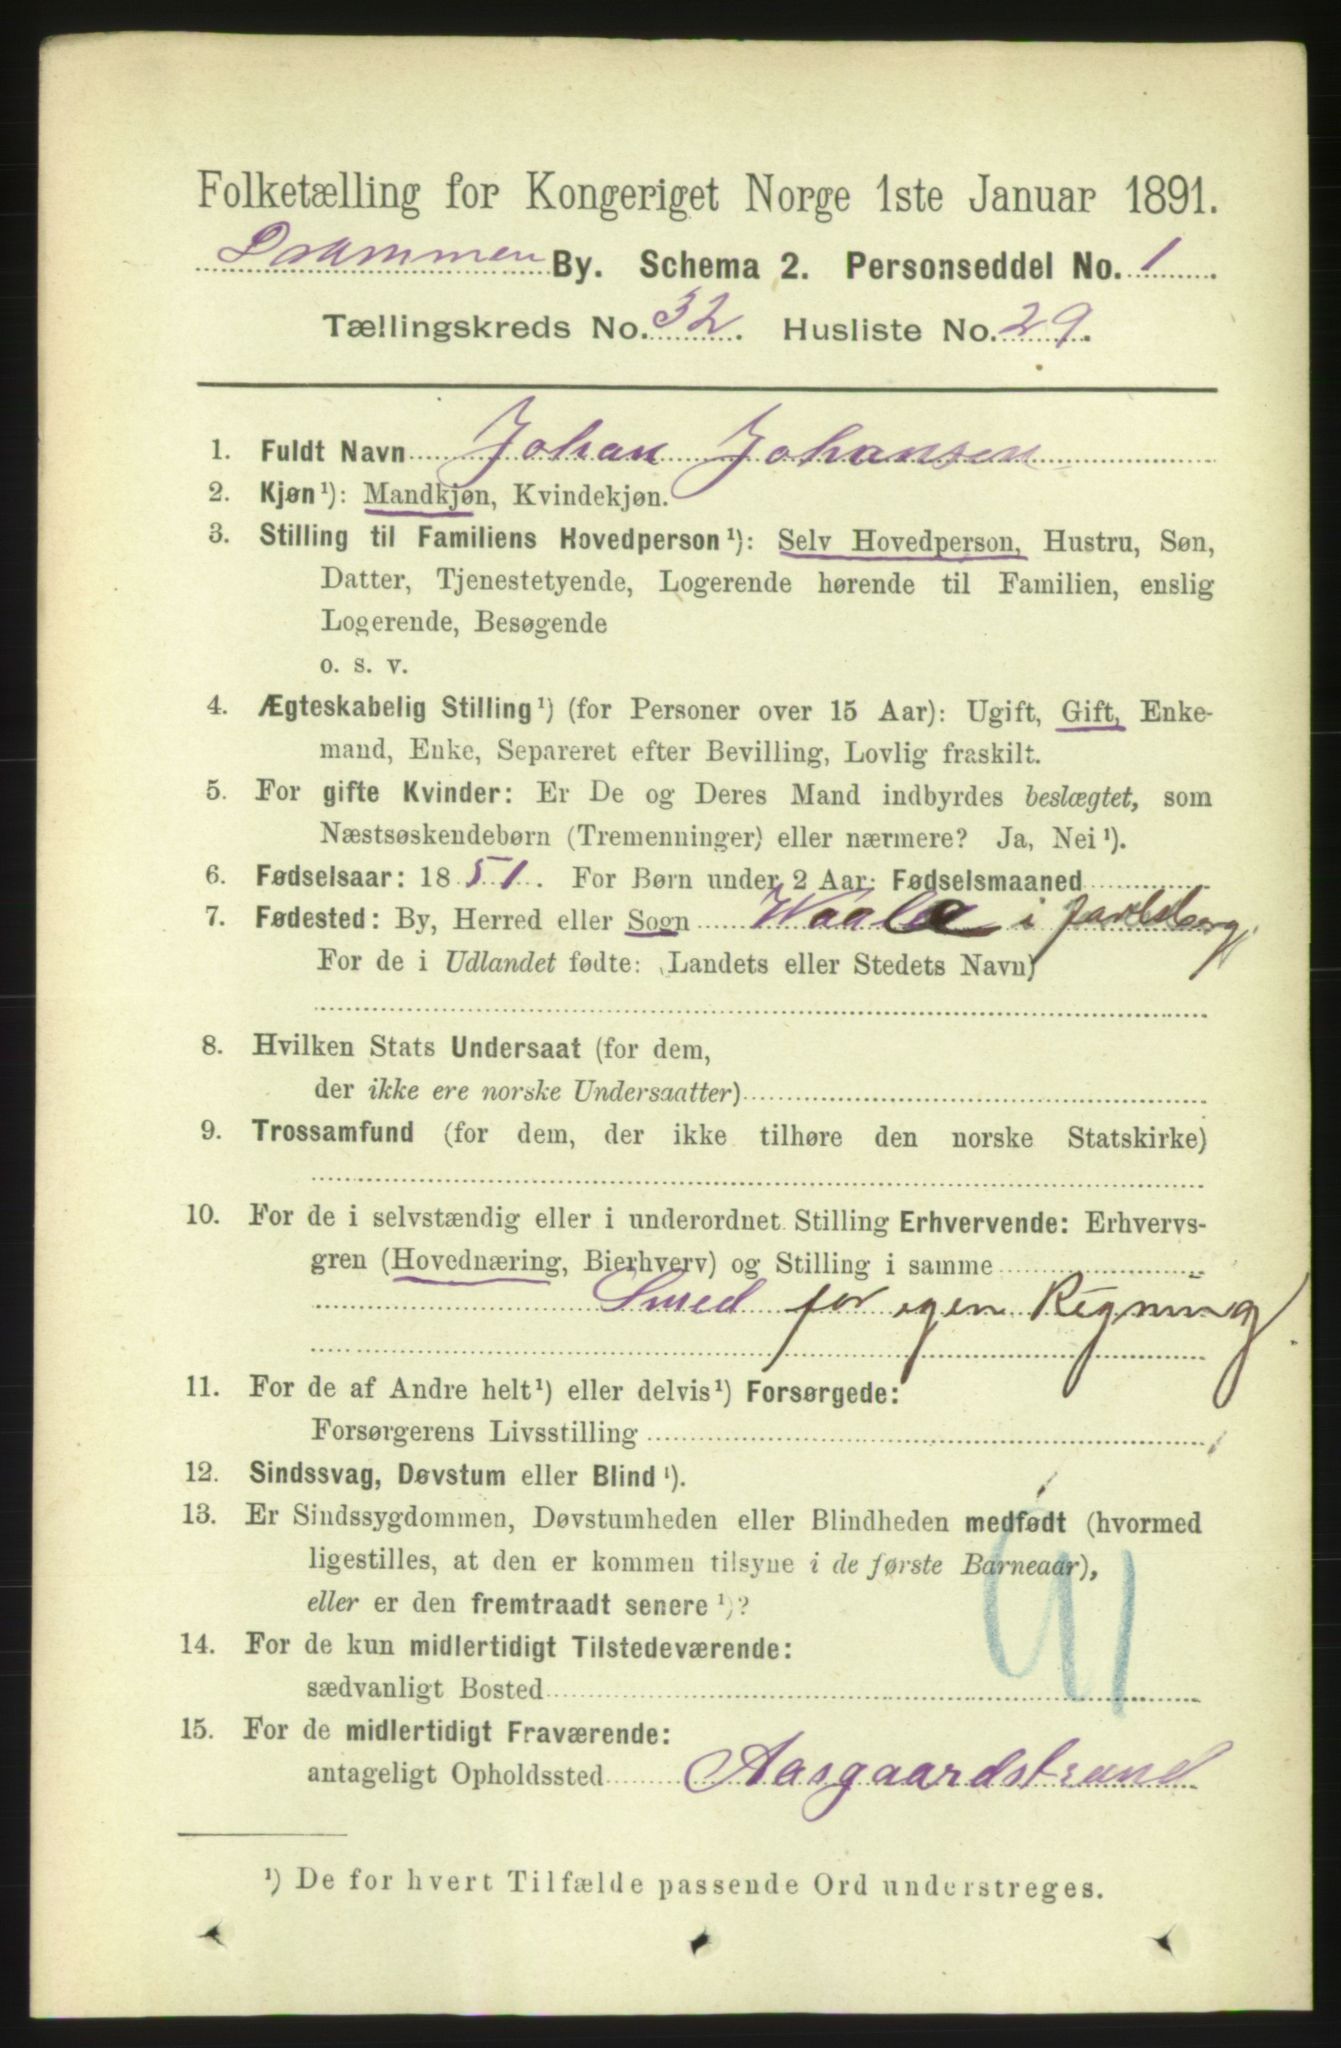 Folketælling for Kongeriget Norge 1ste Januar 1891.
Drammen By. Schema 2. Personseddel No. 1.
Tællingskreds No. 32. Husliste No. 29.
1. Fuldt Navn Johan Johansen
2. Kjøn¹): Mandkjøn, Kvindekjøn.
3. Stilling til Familiens Hovedperson¹): Selv Hovedperson, Hustru, Søn,
Datter, Tjenestetyende, Logerende hørende til Familien, enslig
Logerende, Besøgende
o. s. v.
4. Ægteskabelig Stilling¹) (for Personer over 15 Aar): Ugift, Gift, Enke-
mand, Enke, Separeret efter Bevilling, Lovlig fraskilt.
5. For gifte Kvinder: Er De og Deres Mand indbyrdes beslægtet, som
Næstsøskendebørn (Tremenninger) eller nærmere? Ja, Nei¹).
6. Fødselsaar: 1851. For Børn under 2 Aar: Fødselsmaaned
7. Fødested: By, Herred eller Sogn Waale i Jarlsberg.
For de i Udlandet fødte: Landets eller Stedets Navn)
8. Hvilken Stats Undersaat (for dem,
der ikke ere norske Undersaatter)
9. Trossamfund (for dem, der ikke tilhøre den norske Statskirke)
10. For de i selvstændig eller i underordnet Stilling Erhvervende: Erhvervs-
gren (Hovednæring, Bierhverv) og Stilling i samme
Smed for egen Regning.
11. For de af Andre helt¹) eller delvis¹) Forsørgede:
Forsørgerens Livsstilling
12. Sindssvag, Døvstum eller Blind¹).
13. Er Sindssygdommen, Døvstumheden eller Blindheden medfødt (hvormed
ligestilles, at den er kommen tilsyne i de første Barneaar),
eller er den fremtraadt senere¹)?
91
14. For de kun midlertidigt Tilstedeværende:
sædvanligt Bosted
15. For de midlertidigt Fraværende:
antageligt Opholdssted Aasgaardstrand
¹) De for hvert Tilfælde passende Ord understreges.